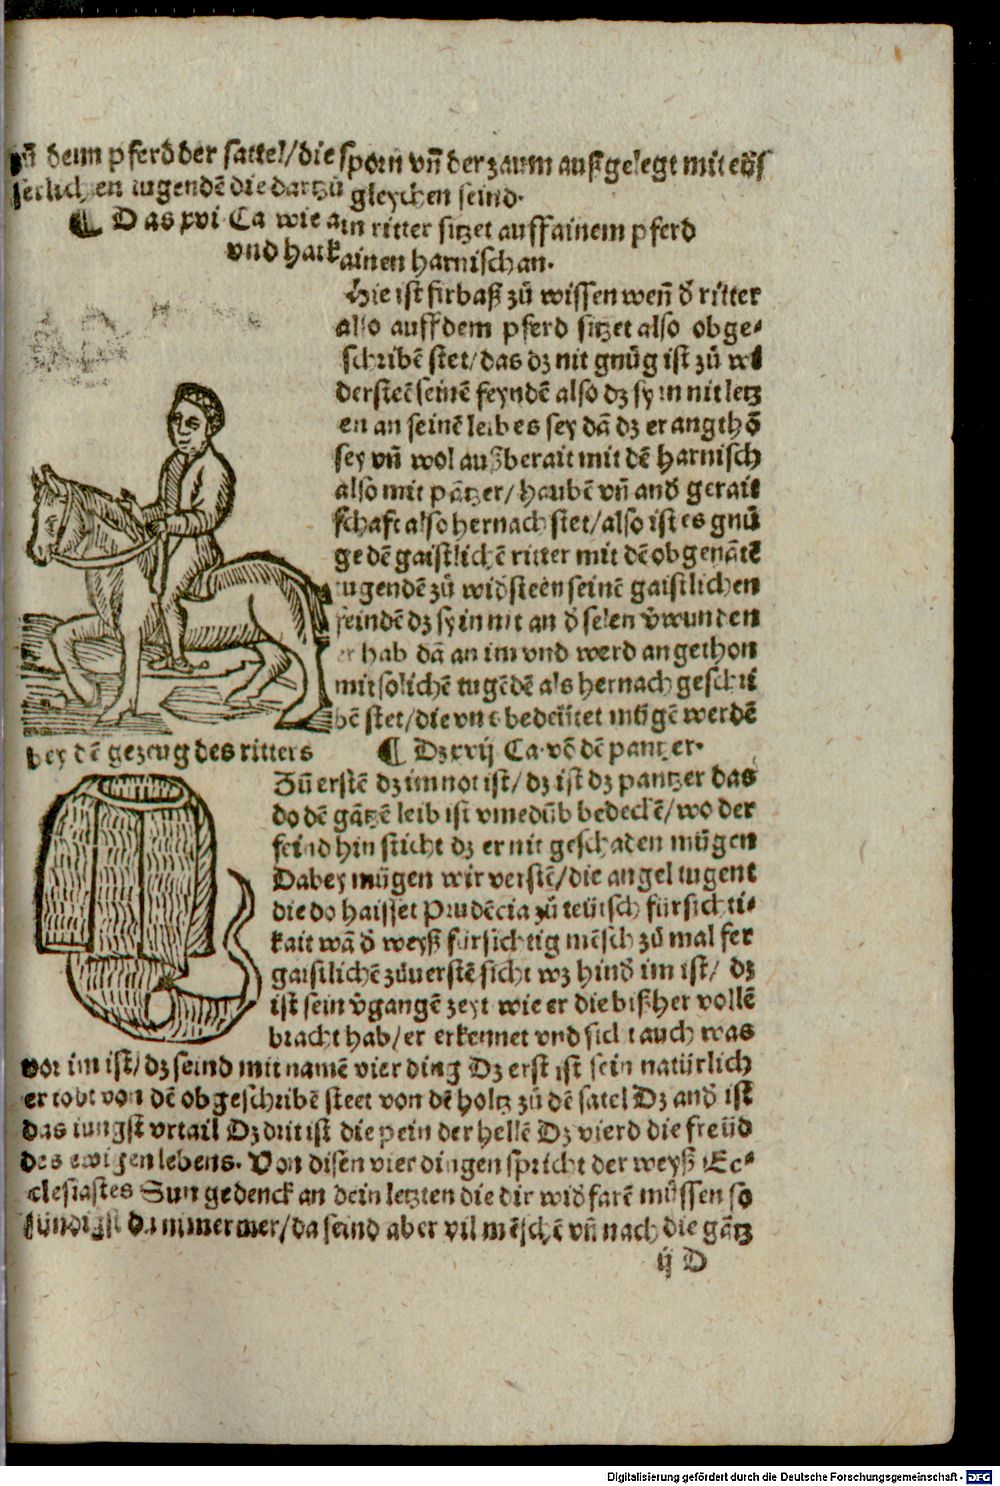 vñ denn pferd der sattel/die sporn vñ der zaum außgelegt mit eds
serlichen tugendē die dartzů gleychen seind.
¶ Das xvi Ca wie ain ritter sitzet auff ainem pferd
vnd hat kainen harnisch an.
Hie ist firbaß zů wissen weñ d̄ ritter
also auff dem pferd sitzet also obge⸗
schribē stet/das dz nit gnůg ist zů wi
dersteē seinē feyndē also dz sy in nit letz
en an seinē leib es sey dā dz er angthō
sey vñ wol außberait mit dē harnisch
also mit pātzer/haubē vñ and̄ gerait
schaft also hernach stet/also ist es gnů
ge dē gaistlichē ritter mit dē obgenātē
tugendē zů wid̄steen seinē gaistlichen
feindē dz sy in nit an d̄ selen v̄wunden
er hab dā an im vnd werd angethon
mit solichē tugēdē als hernach geschri
bē stet/die vns bedeütet mügē werdē
bey dē gezeug des ritters
¶ Dz xvij Ca. vō dē pantzer.
Zů erstē dz im not ist/dz ist dz pantzer das
do dē gātzē leib ist vmedūb bedeckē/wo der
feind hin sticht dz er nit geschaden mügen
Dabey mügen wir verstē/die angel tugent
die do haisset Prudēcia zů teütsch fürsichti⸗
kait wā d̄ weyß fürsichtig mēsch zů mal fer
gaistlichē zůuerstē sicht wz hind̄ im ist/ dz
ist sein v̄gangē zeyt wie er die bißher vollē
bracht hab/er erkennet vnd sicht auch was
vor im ist/dz seind mit namē vier ding Dz erst ist sein natürlich
er tobt von dē obgeschribē steet von dē holtz zů dē satel Dz and̄ ist
das iungst vrtail Dz drit ist die pein der hellē Dz vierd die freüd
des ewigen lebens. Von disen vier dingen spricht der weyß Ec⸗
clesiastes Sun gedenck an dein letzten die dir wid̄farē müssen so
sündigst du nimmermer/da seind aber vil mēschē vñ nach die gātz
ij D
Digitalisierung gefördert durch die Deutsche Forschungsgemeinschaft - DFG